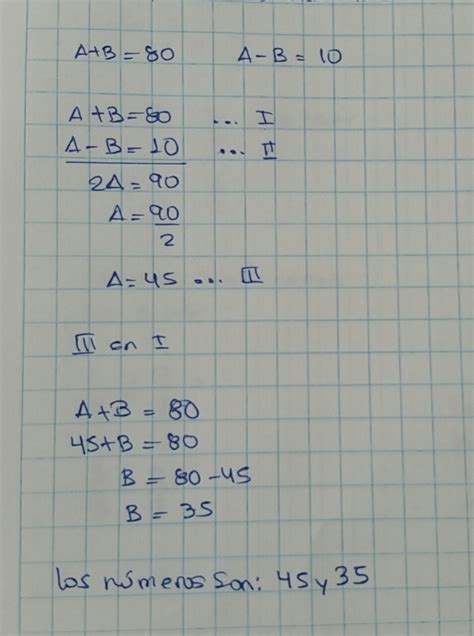 A+B=80 A-B=10
A+B=80 ... I
A-B=10 ... II
2A=90
A=90
2
A=45 ... III
III en I
A+B=80
45+B=80
B=80-45
B=35
los números son: 45 y 35